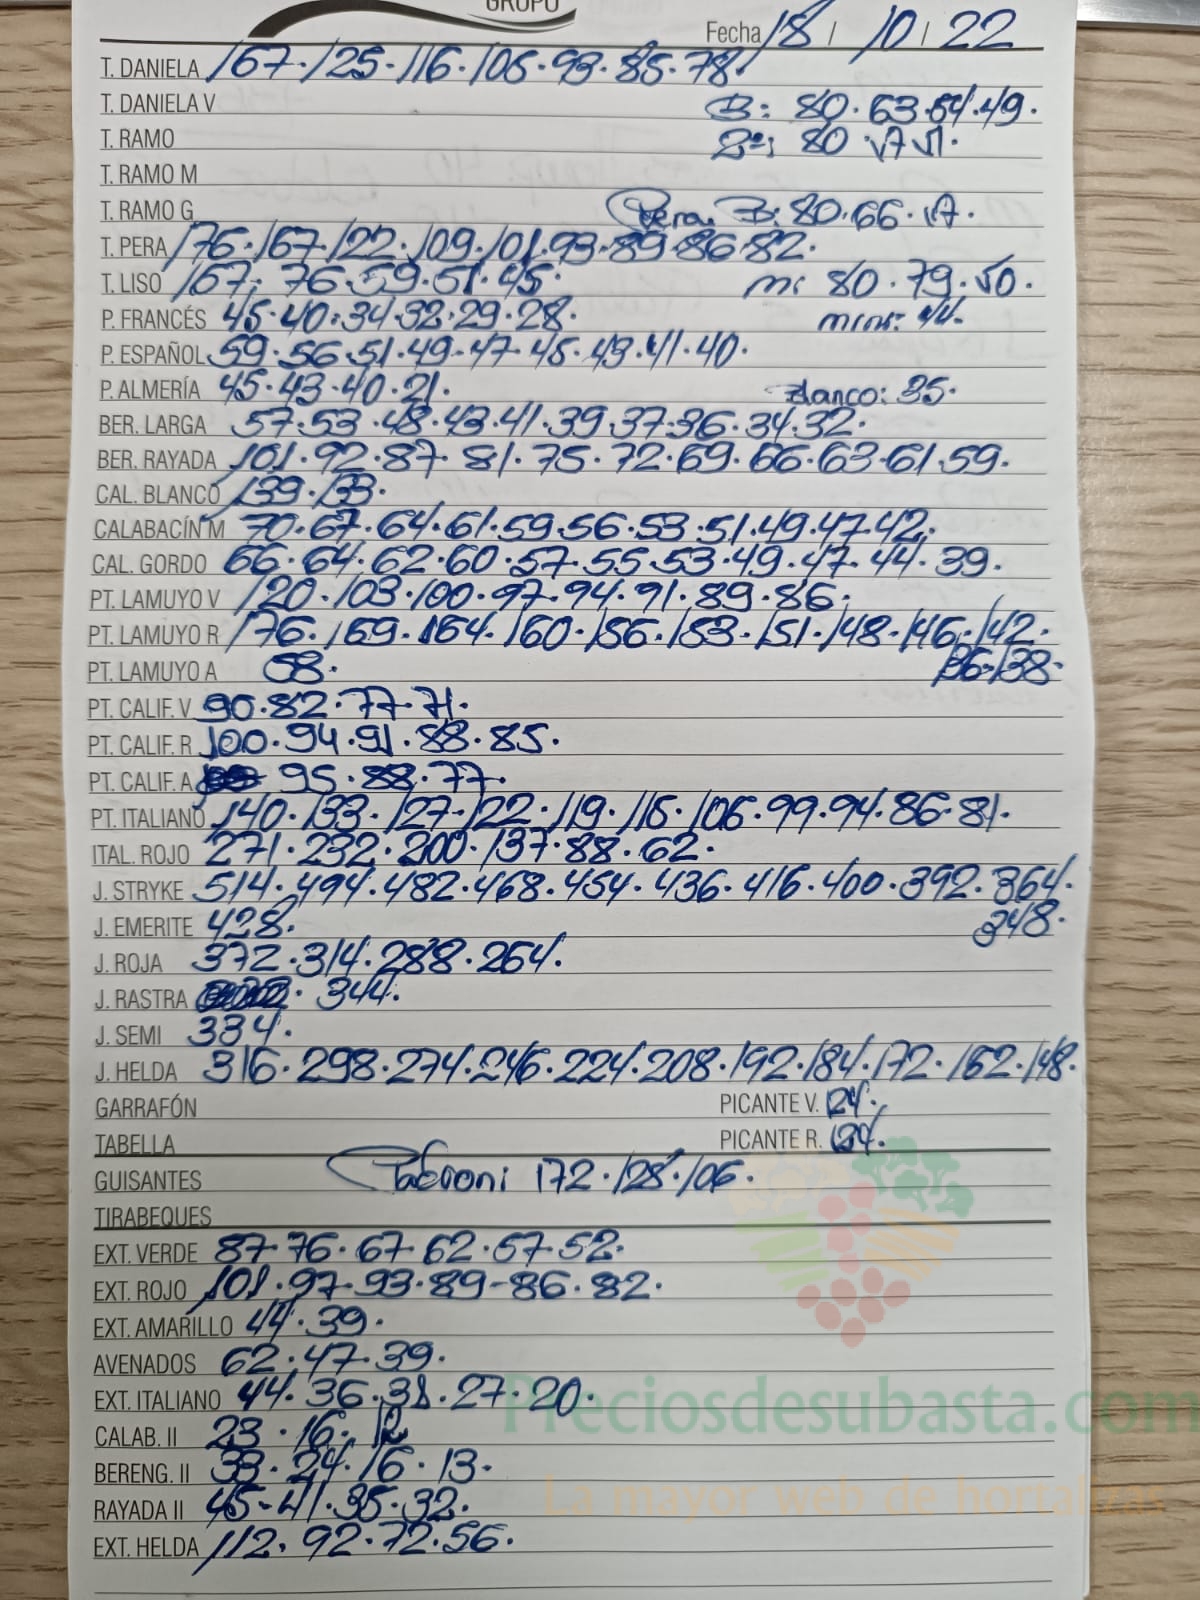 GRUPO
Fecha 18 / 10 / 22
T. DANIELA 167·125·116·106·93·85·78·
T. DANIELA V B: 80·63·54·49·
T. RAMO 2ª: 80·57·51·
T. RAMO M
T. RAMO G Pera. B: 80·66·57·
T. PERA 176·167·122·109·101·93·89·86·82·
T. LISO 167·76·59·51·45· m: 80·79·50·
P. FRANCÉS 45·40·34·32·29·28· mini: 44·
P. ESPAÑOL 59·56·51·49·47·45·43·41·40·
P. ALMERÍA 45·43·40·21· Blanco: 35·
BER. LARGA 57·53·48·43·41·39·37·36·34·32·
BER. RAYADA 101·92·87·81·75·72·69·66·63·61·59·
CAL. BLANCO 139·133·
CALABACÍN M 70·67·64·61·59·56·53·51·49·47·42·
CAL. GORDO 66·64·62·60·57·55·53·49·47·44·39·
PT. LAMUYO V 120·103·100·97·94·91·89·86·
PT. LAMUYO R 176·169·164·160·156·153·151·148·146·142·
PT. LAMUYO A 68· 136·138·
PT. CALIF. V 90·82·77·71·
PT. CALIF. R 100·94·91·88·85·
PT. CALIF. A 95·88·77·
PT. ITALIANO 140·133·127·122·119·115·106·99·94·86·81·
ITAL. ROJO 271·232·200·137·88·62·
J. STRYKE 514·494·482·468·454·436·416·400·392·364·
J. EMERITE 428· 348·
J. ROJA 372·314·288·264·
J. RASTRA 344·
J. SEMI 334·
J. HELDA 316·298·274·246·224·208·192·184·172·162·148·
GARRAFÓN PICANTE V. 124·
TABELLA PICANTE R. 124·
GUISANTES Padroni 172·128·106·
TIRABEQUES
EXT. VERDE 87·76·67·62·57·52·
EXT. ROJO 101·97·93·89·86·82·
EXT. AMARILLO 44·39·
AVENADOS 62·47·39·
EXT. ITALIANO 44·36·31·27·20·
Preciosdesubasta.com
CALAB. II 23·16·12
BERENG. II 33·24·16·13·
RAYADA II 45·41·35·32·
La mayor web de hortalizas
EXT. HELDA 112·92·72·56·